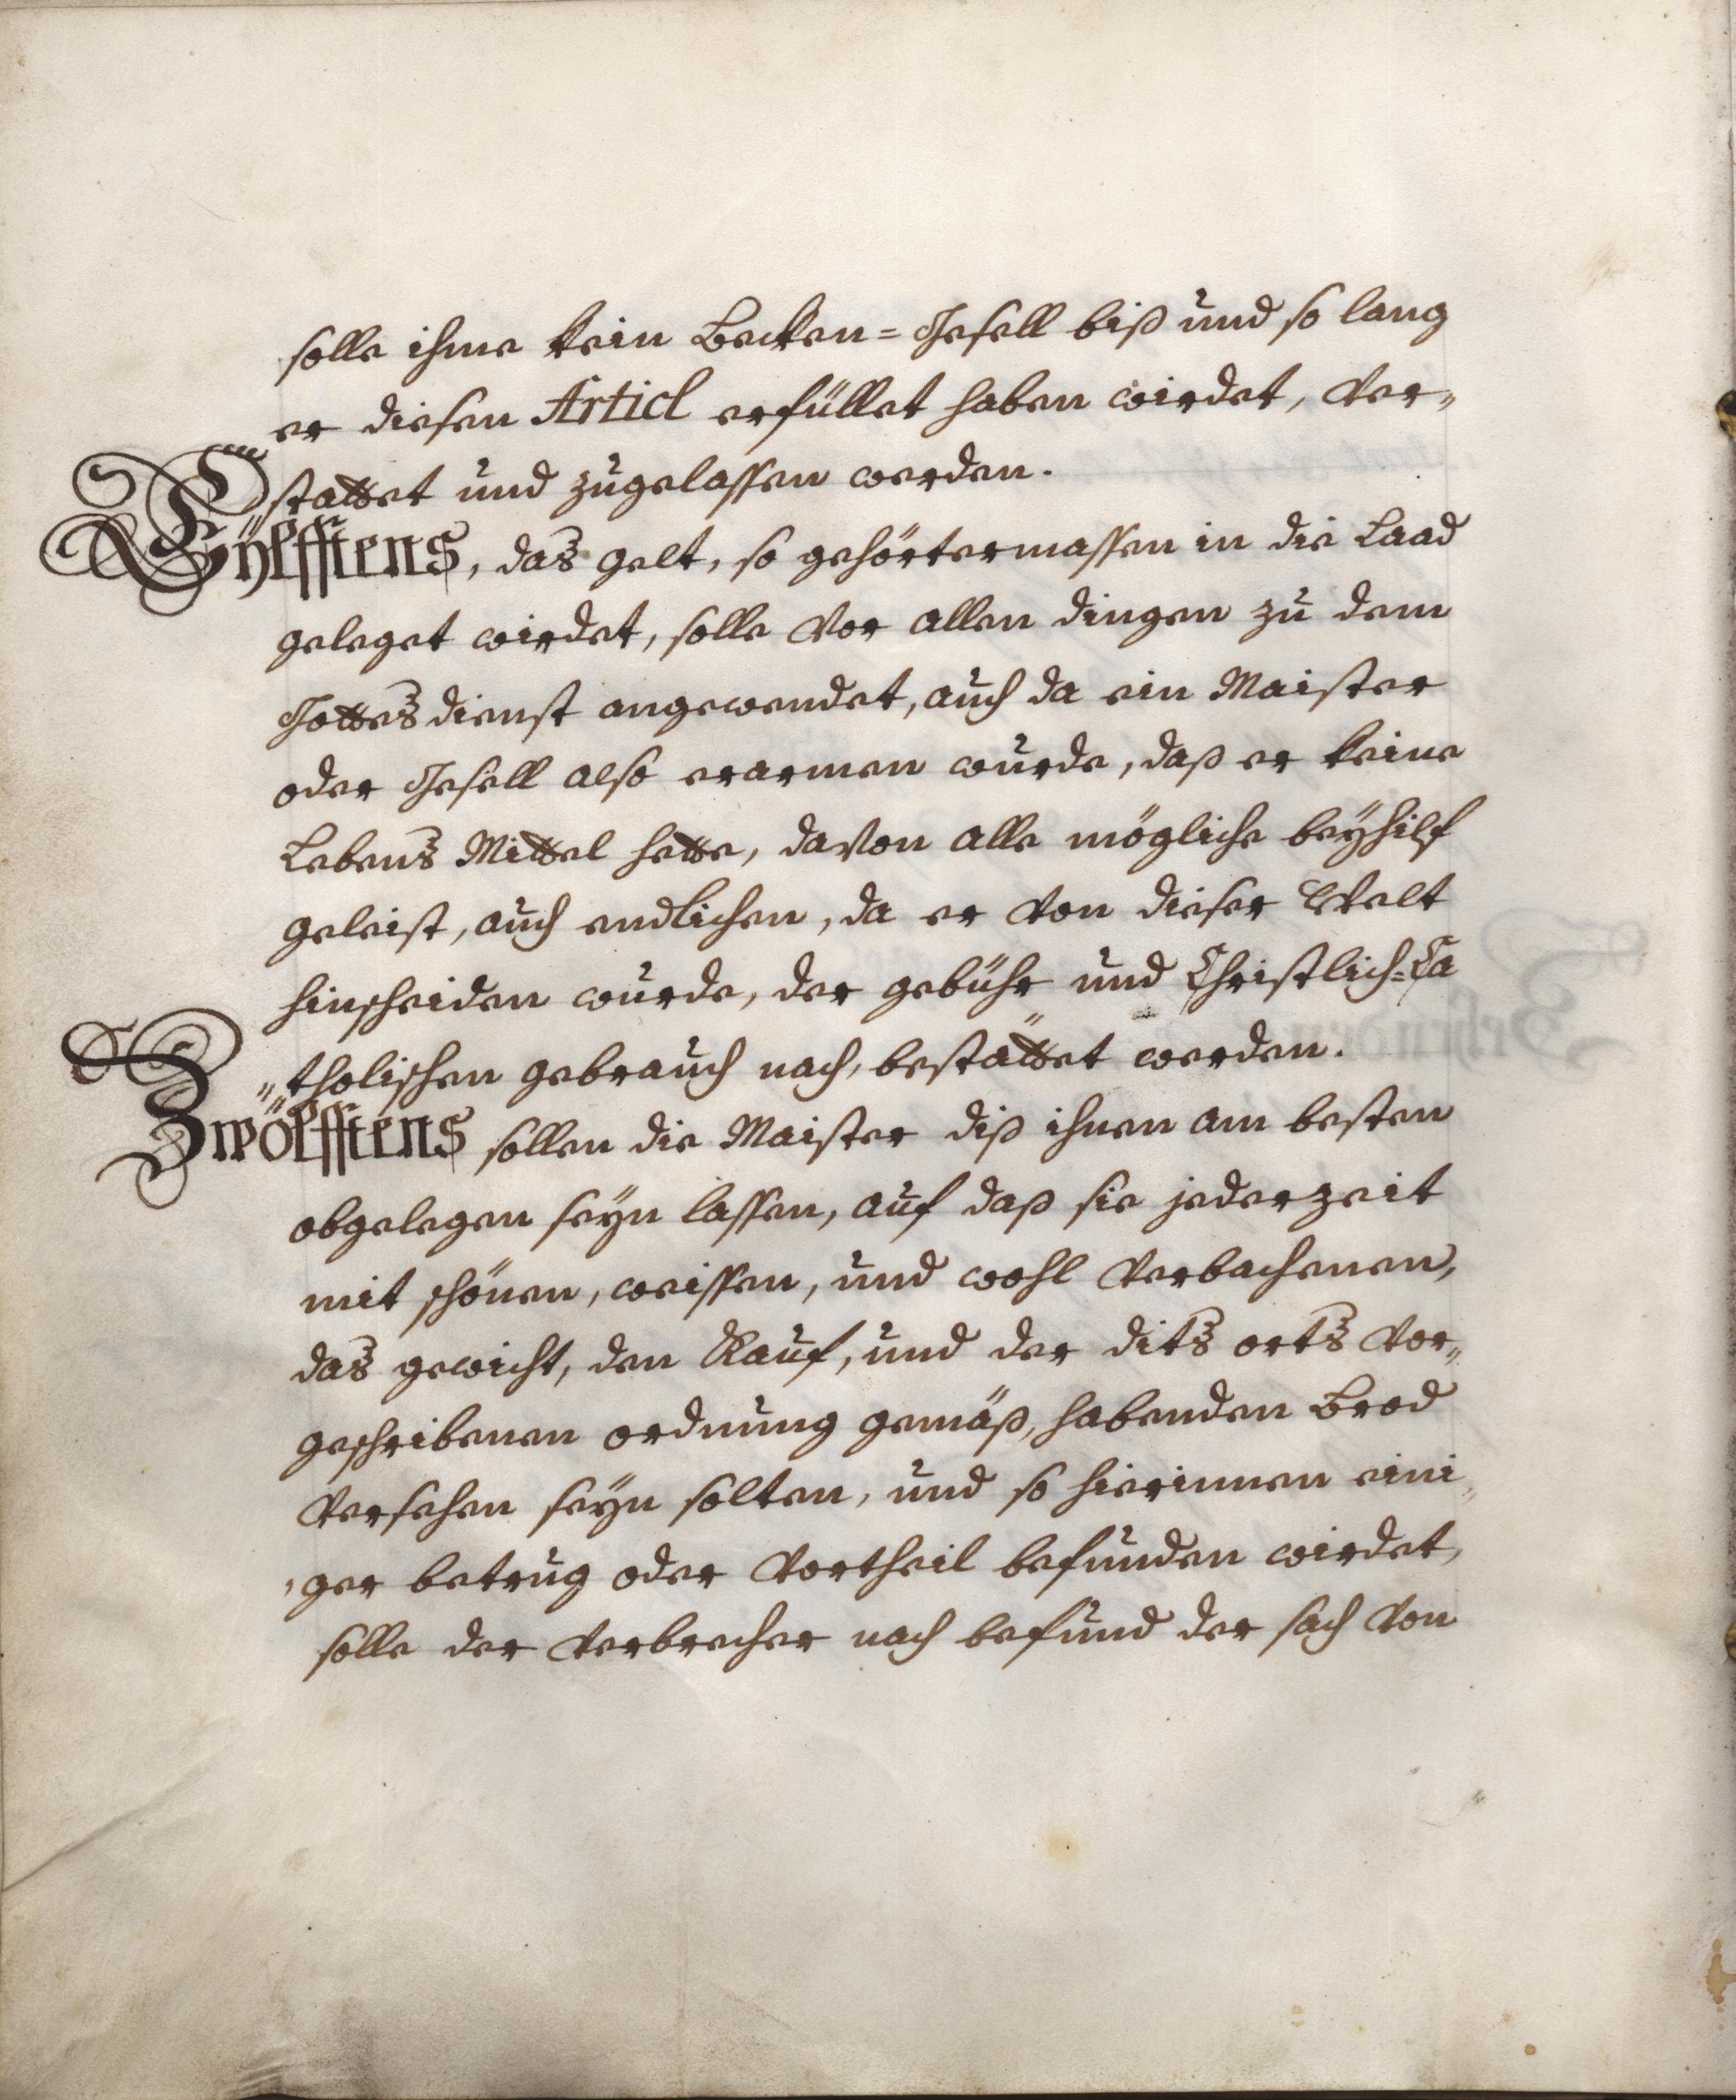 solle ihme kein Becken=Gesell biß und so lang
er diesen Articl erfüllet haben wirdet, ver„
„stattet und zugelassen werden.
Eÿlfftens, das gelt, so gehörtermassen in die Laad
geleget wirdet, solle vor allen dingen zu dem
Gottes dienst angewendet, auch da ein Maister
oder Gesell also erarmen wurde, daß er keine
Lebens Mittel hette, davon alle mögliche beÿhilf
geleist, auch endlichen, da er von dieser Welt
hinscheiden wurde, der gebühr und Christlich=Ca
„tholischen gebrauch nach, bestättet werden.
Zwölfftens sollen die Maister diß ihnen am besten
obgelegen seÿn lassen, auf daß sie jederzeit
mit schönen, weissen, und wohl verbachenen,
das gewicht, den Kauf, und der dits orts vor„
geschribenen ordnung gemäß, habenden Brod
versehen seÿn solten, und so hierinnen eini„
„ger betrug oder vortheil befunden wirdet,
solle der verbrecher nach befund der sach von